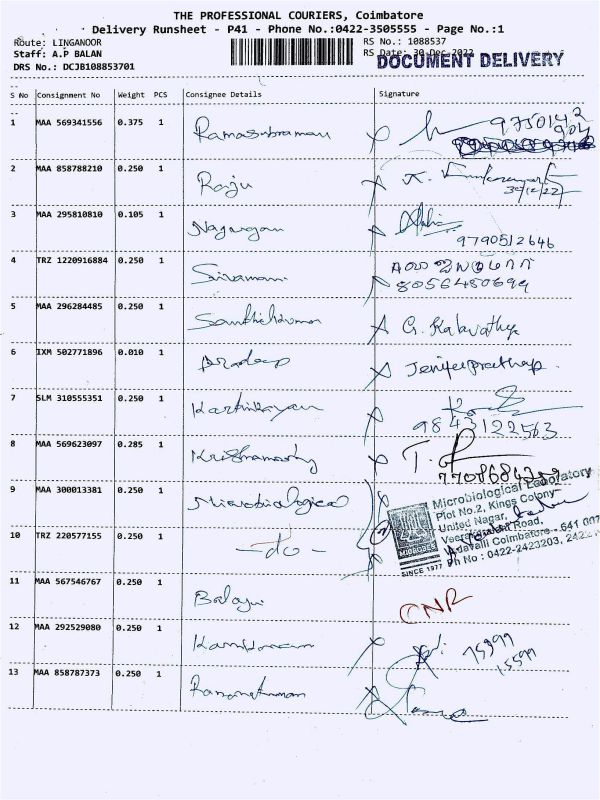 THE PROFESSIONAL COURIERS, Coimbatore
Delivery Runsheet - P41 - Phone No.:0422-3505555 - Page No.:1
Route: LINGANOOR
Staff: A.P BALAN
DRS No.: DCJB108853701
RS No.: 1088537
RS Date: 30-Dec-2022
DOCUMENT DELIVERY
S No Consignment No Weight PCS Consignee Details Signature
1 MAA 569341556 0.375 1 Ramasubramani
2 MAA 858788210 0.250 1 Raju
30/12/22
3 MAA 295810810 0.105 1 Nagarajan
9790512646
4 TRZ 1220916884 0.250 1 Sivamani
8056480699
5 MAA 296284485 0.250 1 G. Kalavathy
6 IXM 502771896 0.010 1 Pradeep Jenifer preethap.
7 SLM 310555351 0.250 1 Karthikeyan
9843122563
8 MAA 569623097 0.285 1 Krishnamoorthy
9 MAA 300013381 0.250 1 Microbiological
Microbiological Laboratory
Plot No.2, Kings Colony
United Nagar,
Road,
Vadavalli Coimbatore - 641 007
Ph No : 0422-2423203,
MICROBES
SINCE 1977
10 TRZ 220577155 0.250 1 -do-
11 MAA 567546767 0.250 1 Balaji CNR
12 MAA 292529080 0.250 1
13 MAA 858787373 0.250 1 Ramanathan